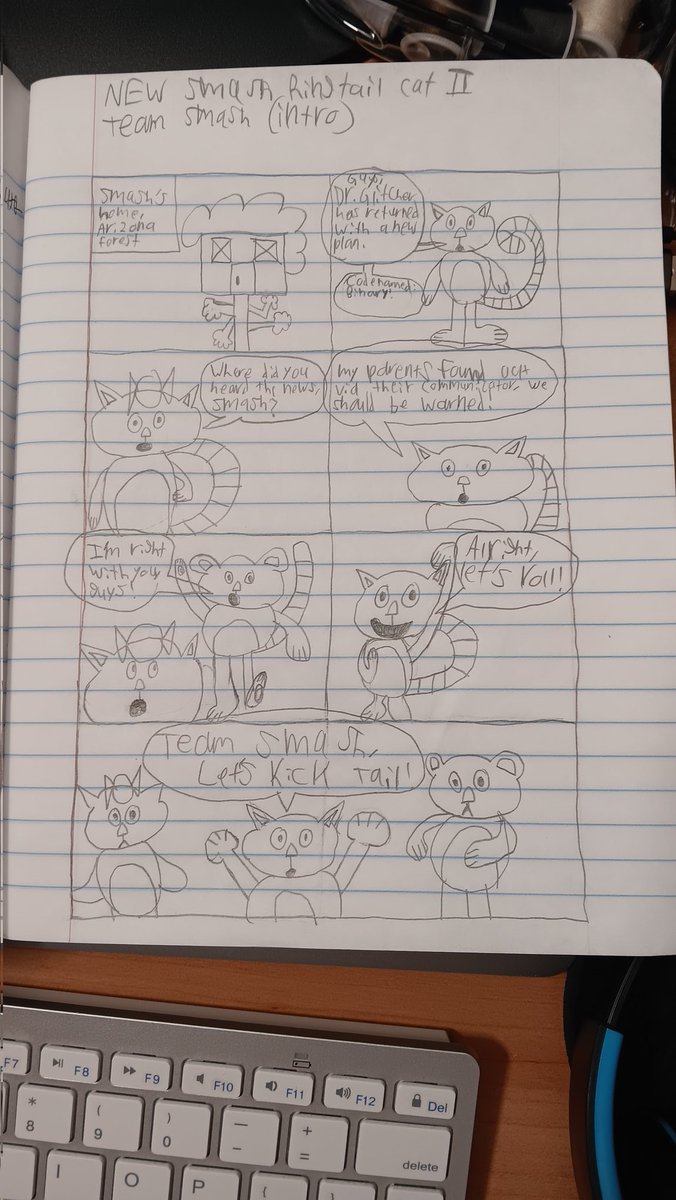 NEW Smash Ringtail cat II
Team Smash (intro)
Smash's
home,
Arizona
forest
Guys,
Dr. Glitcher
has returned
with a new
plan.
Codenamed:
Binary.
Where did you
heard the news,
Smash?
My parents found out
via their communicator, we
should be warned.
I'm right
with you
guys!
Alright,
let's roll!
Team Smash,
Let's Kick Tail!
F7
F8
F9
F10
F11
F12
Del
*
8
(
9
)
0
—
-
+
=
delete
I
O
P
{
}